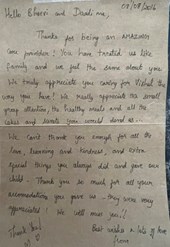 07/08/2016
Hello Bhavvi and Daadi ma,
Thanks for being an AMAZING
care providers! You have treated us like
family and we feel the same about you.
We truly appreciate you caring for Vishal the
way you have! We really appreciate the small
group attention, the healthy meals and all the
cakes and treats you would send us.
We can't thank you enough for all the
love, learning and kindness, and extra
special things you always did and gave our
child. Thank you so much for all your
accommodations you gave us, they were very
appreciated! We will miss you!!
Thank You! Best wishes & lots of love
from